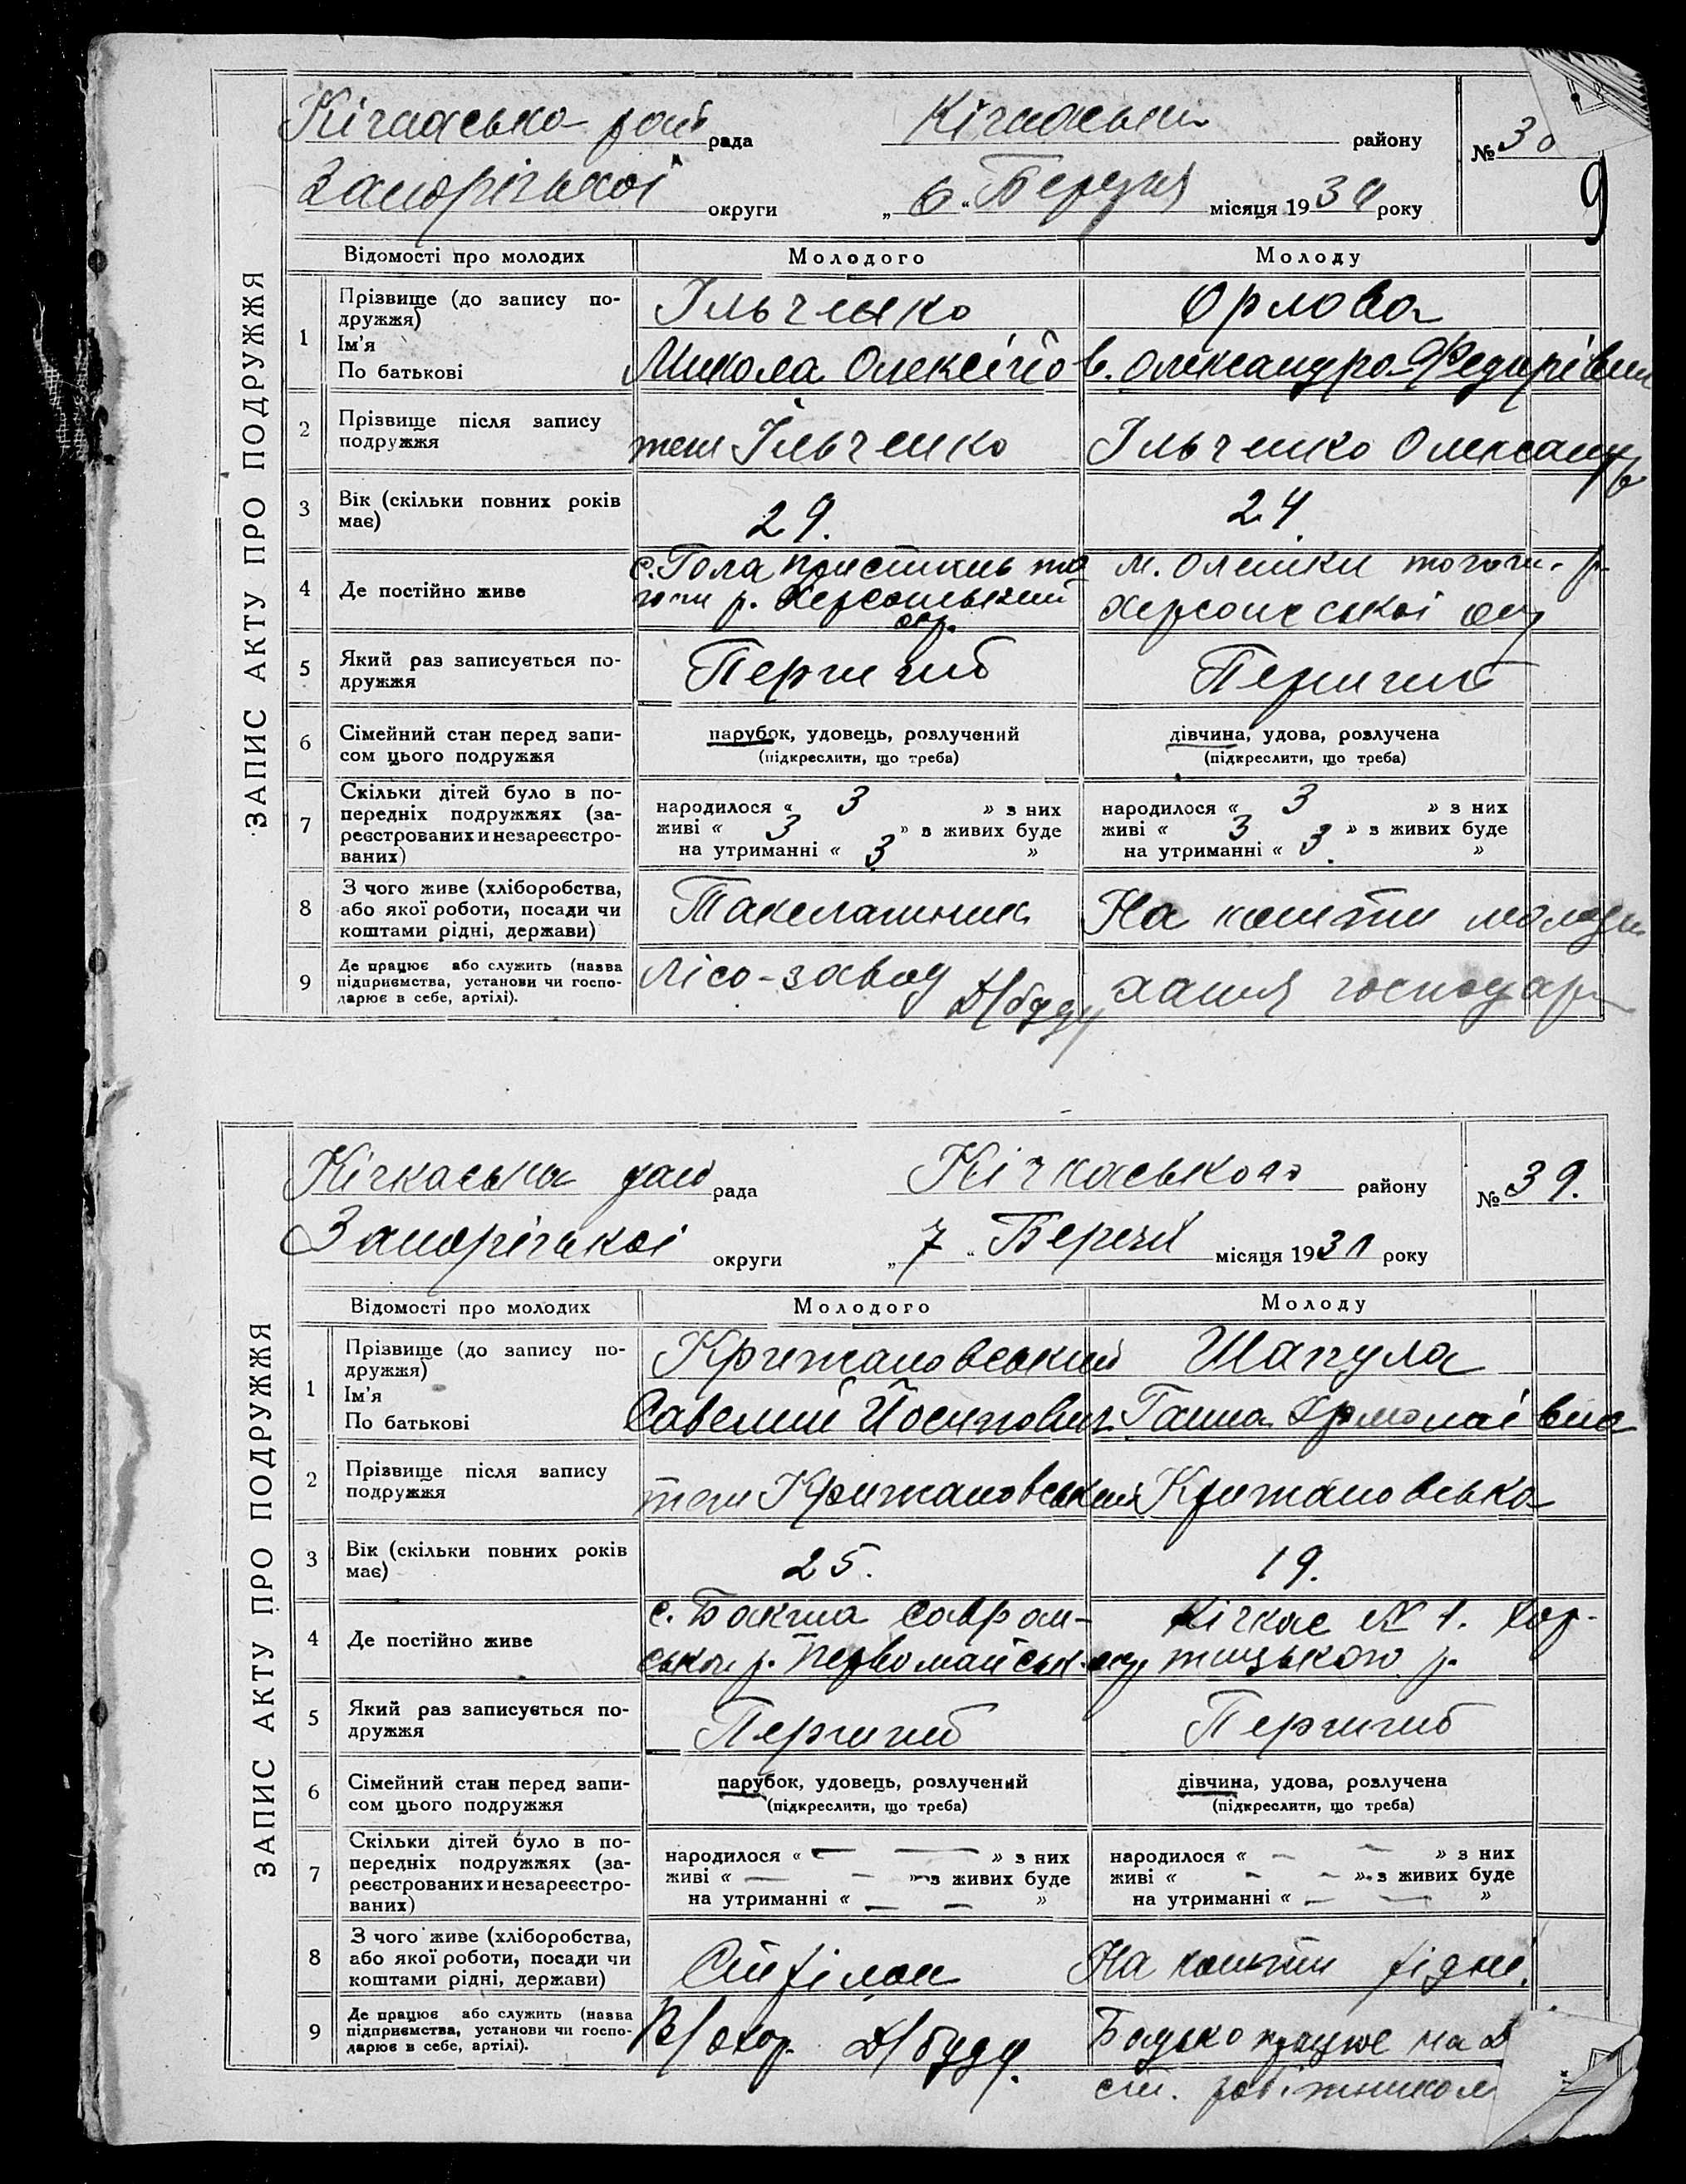 ЗАПИС АКТУ ПРО ПОДРУЖЖЯ
рада
району
№ 30
9
Запорізької округи
„ 6 “ Березня місяця 1930 року
Відомості про молодих Молодого Молоду
1 Прізвище (до запису по-
дружжя)
Ім'я
По батькові
Ільченко
Микола Олексійов.
Орлова
Олександра Федорівна
2 Прізвище після запису
подружжя
теж Ільченко
Ільченко Олександр
3 Вік (скільки повних років
має)
29.
24.
4 Де постійно живе
с. Гола Пристань
р. Херсонський
окр.
м. Олешки р.
Херсонської
5 Який раз записується по-
дружжя
Перший
Перший
6 Сімейний стан перед запи-
сом цього подружжя
парубок, удовець, розлучений
(підкреслити, що треба)
дівчина, удова, розлучена
(підкреслити, що треба)
7 Скільки дітей було в по-
передніх подружжях (за-
реєстрованих и незареєстро-
ваних)
народилося « 3 » з них
живі « 3 » з живих буде
на утриманні « 3. »
народилося « 3 » з них
живі « 3 » з живих буде
на утриманні « 3. »
8 З чого живе (хліборобства,
або якої роботи, посади чи
коштами рідні, держави)
Такелажник
На кошти
9 Де працює або служить (назва
підприємства, установи чи госпо-
дарює в себе, артілі).
Лісо-завод Д/буду
хатня господар
ЗАПИС АКТУ ПРО ПОДРУЖЖЯ
Кічкаська рада
Кічкаського району
№ 39.
Запорізької округи
„ 7 “ місяця 1930 року
Відомості про молодих Молодого Молоду
1 Прізвище (до запису по-
дружжя)
Ім'я
По батькові
Крижановський
Савелий Йосипович
Шапула
Ганна Ярмолаівна
2 Прізвище після запису
подружжя
теж Крижановський
Крижановська
3 Вік (скільки повних років
має)
25.
19.
4 Де постійно живе
с. Бакша Савран-
ськ. р. Первомайськ. окр
Кічкас № 1. Хор-
тицького р.
5 Який раз записується по-
дружжя
Перший
Перший
6 Сімейний стан перед запи-
сом цього подружжя
парубок, удовець, розлучений
(підкреслити, що треба)
дівчина, удова, розлучена
(підкреслити, що треба)
7 Скільки дітей було в по-
передніх подружжях (за-
реєстрованих и незареєстро-
ваних)
народилося « — — » з них
живі « — — » з живих буде
на утриманні « — — »
народилося « — — » з них
живі « — — » з живих буде
на утриманні « — — »
8 З чого живе (хліборобства,
або якої роботи, посади чи
коштами рідні, держави)
Стрілок
На кошти рідні.
9 Де працює або служить (назва
підприємства, установи чи госпо-
дарює в себе, артілі).
В/охор. Д/буду.
Батько працює на Д
ст. робітником